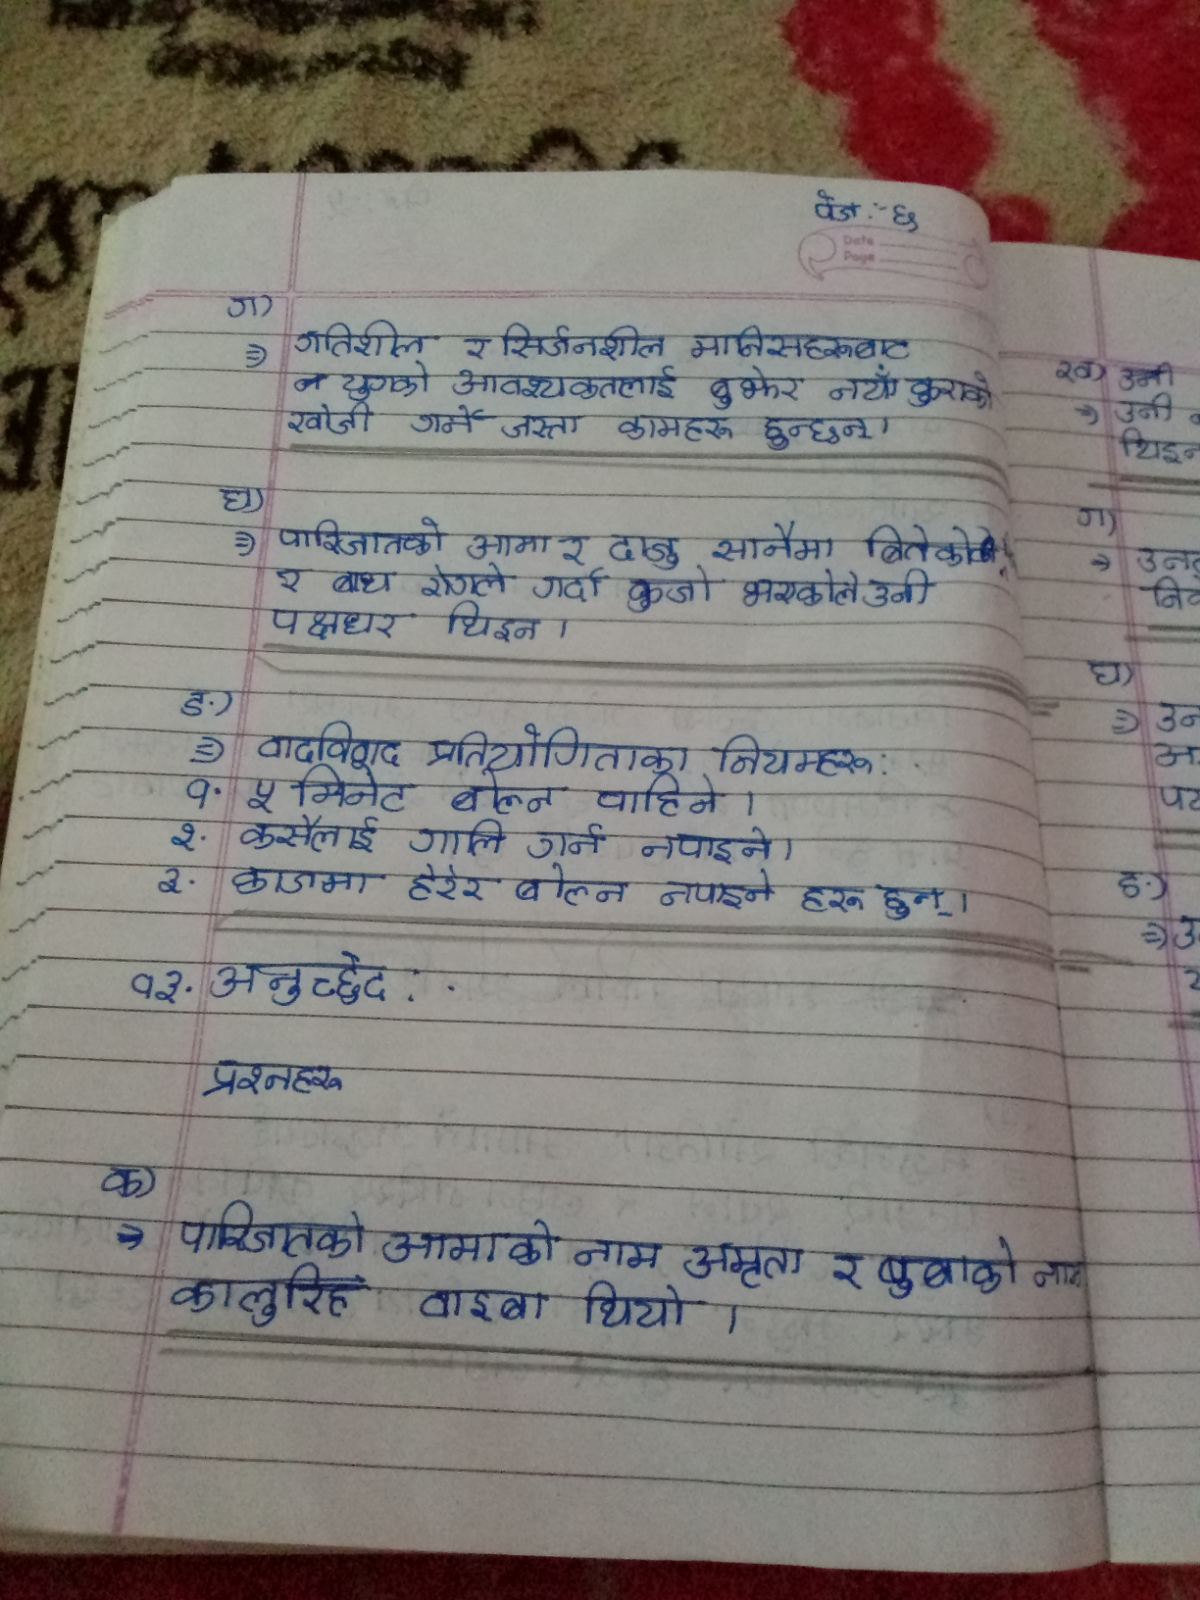 पेज :- ६
Date
Page
ग)
⇒ गतिशील र सिर्जनशील मानिसहरूबाट
न युगको आवश्यकतलाई बुझेर नयाँ कुराको
खोजी गर्ने जस्ता कामहरू हुन्छन्।
घ)
⇒ पारिजातको आमा र दाजु सानैमा बितेकोले
र बाथ रोगले गर्दा कुजो भएकोले उनी
पक्षधर थिइन।
ङ)
⇒ वादविवाद प्रतियोगिताका नियमहरू :
१. ५ मिनेट बोल्न चाहिने।
२. कसैलाई गालि गर्न नपाइने।
३. कागजमा हेरेर बोल्न नपाइने हरू हुन्।
१३. अनुच्छेद :
प्रश्नहरू
क)
⇒ पारिजातको आमाको नाम अमृता र बुबाको नाम
कालुरिहं वाइबा थियो।
ख) उनी
⇒ उनी
थिइन
ग)
⇒
घ)
⇒
ङ)
⇒